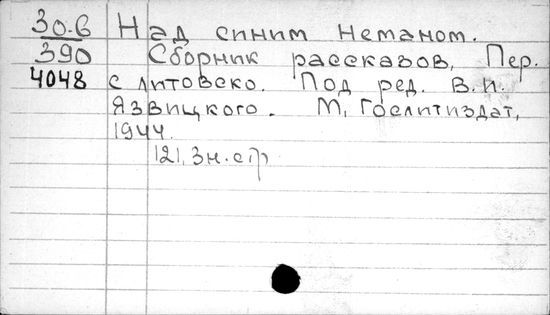 30-6 Над синим Неманом.
390 Сборник рассказов, Пер.
4048 с литовско. Под ред. В.И.
Язвицкого. М, Гослитиздат,
1944.
121, 3 н. стр